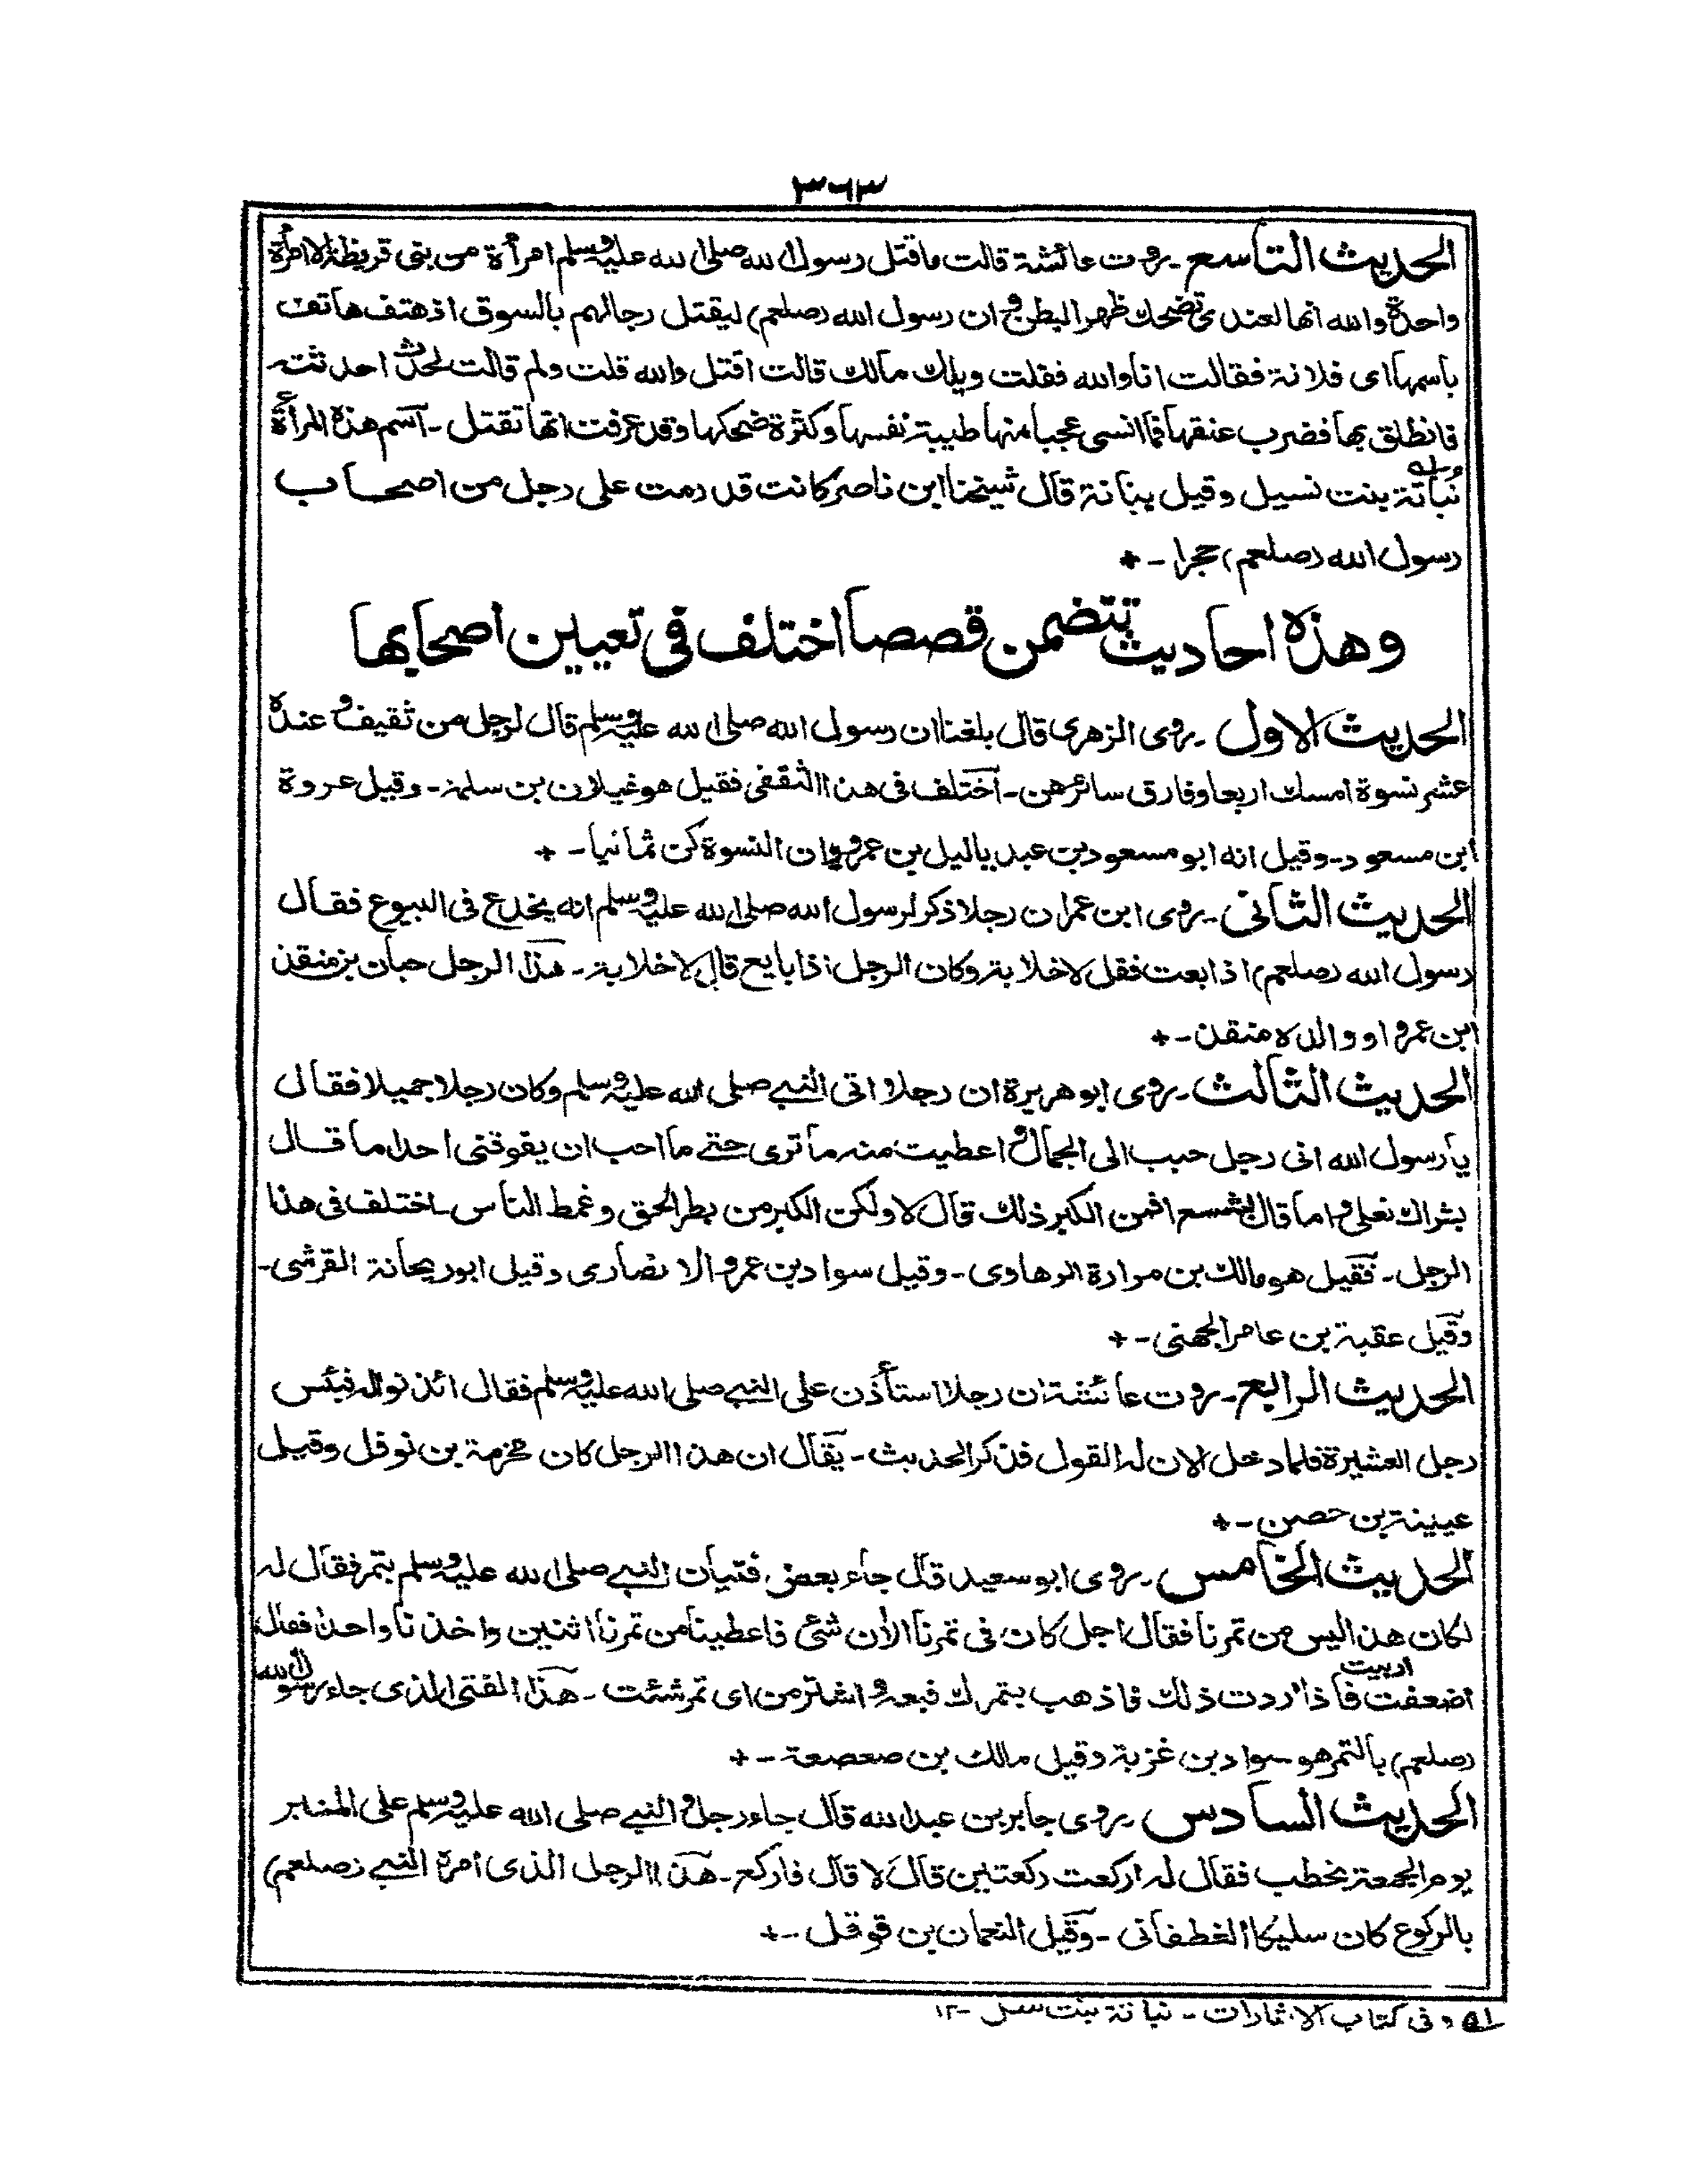 ٣٦٣
الحديث التاسع ـ روت عائشة قالت ماقتل رسول الله صلى الله عليه وسلم امرأة من بنى قريظة الا امرأة
واحدة والله انها لعندى تضحك ظهر البطن وان رسول الله (صلعم) ليقتل رجالهم بالسوق اذ هتف هاتف
باسمها اى فلانة فقالت انا والله فقلت ويلك مالك قالت اقتل والله قلت ولم قالت لحدث احدثته
فانطلق بها فضرب عنقها فما انسى عجبا منها طيبة نفسها وكثرة ضحكها وقد عرفت انها تقتل ـ اسم هذه المرأة
نُباتة بنت نسيل وقيل بنانة قال شيخنا ابن ناصر كانت قد رمت على رجل من اصحاب
رسول الله (صلعم) حجرا ـ +
وهذه احاديث تتضمن قصصا اختلف فى تعيين اصحابها
الحديث الاول ـ روى الزهرى قال بلغنا ان رسول الله صلى الله عليه وسلم قال لرجل من ثقيف وعنده
عشر نسوة امسك اربعا وفارق سائرهن ـ اختلف فى هذا الثقفى فقيل هو غيلان بن سلمة ـ وقيل عروة
ابن مسعود ـ وقيل انه ابو مسعود بن عبد ياليل بن عمرو وان النسوة كن ثمانيا ـ +
الحديث الثانى ـ روى ابن عمر ان رجلا ذكر لرسول الله صلى الله عليه وسلم انه يخدع فى البيوع فقال
رسول الله (صلعم) اذا بعت فقل لا خلابة وكان الرجل اذا بايع قال لا خلابة ـ هذا الرجل حبان بن منقذ
ابن عمرو او والده منقذ ـ +
الحديث الثالث ـ روى ابو هريرة ان رجلا اتى النبى صلى الله عليه وسلم وكان رجلا جميلا فقال
يا رسول الله انى رجل حبب الى الجمال واعطيت منه ما ترى حتى ما احب ان يفوقنى احد اما قال
بشراك نعلى واما قال بشسع افمن الكبر ذلك قال لا ولكن الكبر من بطر الحق وغمط الناس ـ اختلف فى هذا
الرجل ـ فقيل هو مالك بن مرارة الرهاوى ـ وقيل سواد بن عمرو الانصارى وقيل ابو ريحانة القرشى ـ
وقيل عقبة بن عامر الجهنى ـ +
الحديث الرابع ـ روت عائشة ان رجلا استأذن على النبى صلى الله عليه وسلم فقال ائذنوا له فبئس
رجل العشيرة فلما دخل الان له القول فذكر الحديث ـ يقال ان هذا الرجل كان مخرمة بن نوفل وقيل
عيينة بن حصن ـ +
الحديث الخامس ـ روى ابو سعيد قال جاء بعض فتيان النبى صلى الله عليه وسلم بتمر فقال له
لكان هذا ليس من تمرنا فقال اجل كان فى تمرنا الأن شئ فاعطينا من تمرنا اثنين واخذنا واحدا فقال
اضعفت اربيت فاذا اردت ذلك فاذهب بتمرك فبعه واشتر من اى تمر شئت ـ هذا الفتى الذى جاء رسول الله
(صلعم) بالتمر هو سواد بن غزية وقيل مالك بن صعصعة ـ +
الحديث السادس ـ روى جابر بن عبد الله قال جاء رجل والنبى صلى الله عليه وسلم على المنبر
يوم الجمعة يخطب فقال له اركعت ركعتين قال لا قال فاركع ـ هذا الرجل الذى امره النبى (صلعم)
بالركوع كان سليكا الغطفانى ـ وقيل النعمان بن قوقل ـ +
له وفى كتاب الاشارات ـ نباتة بنت ١٢ـ